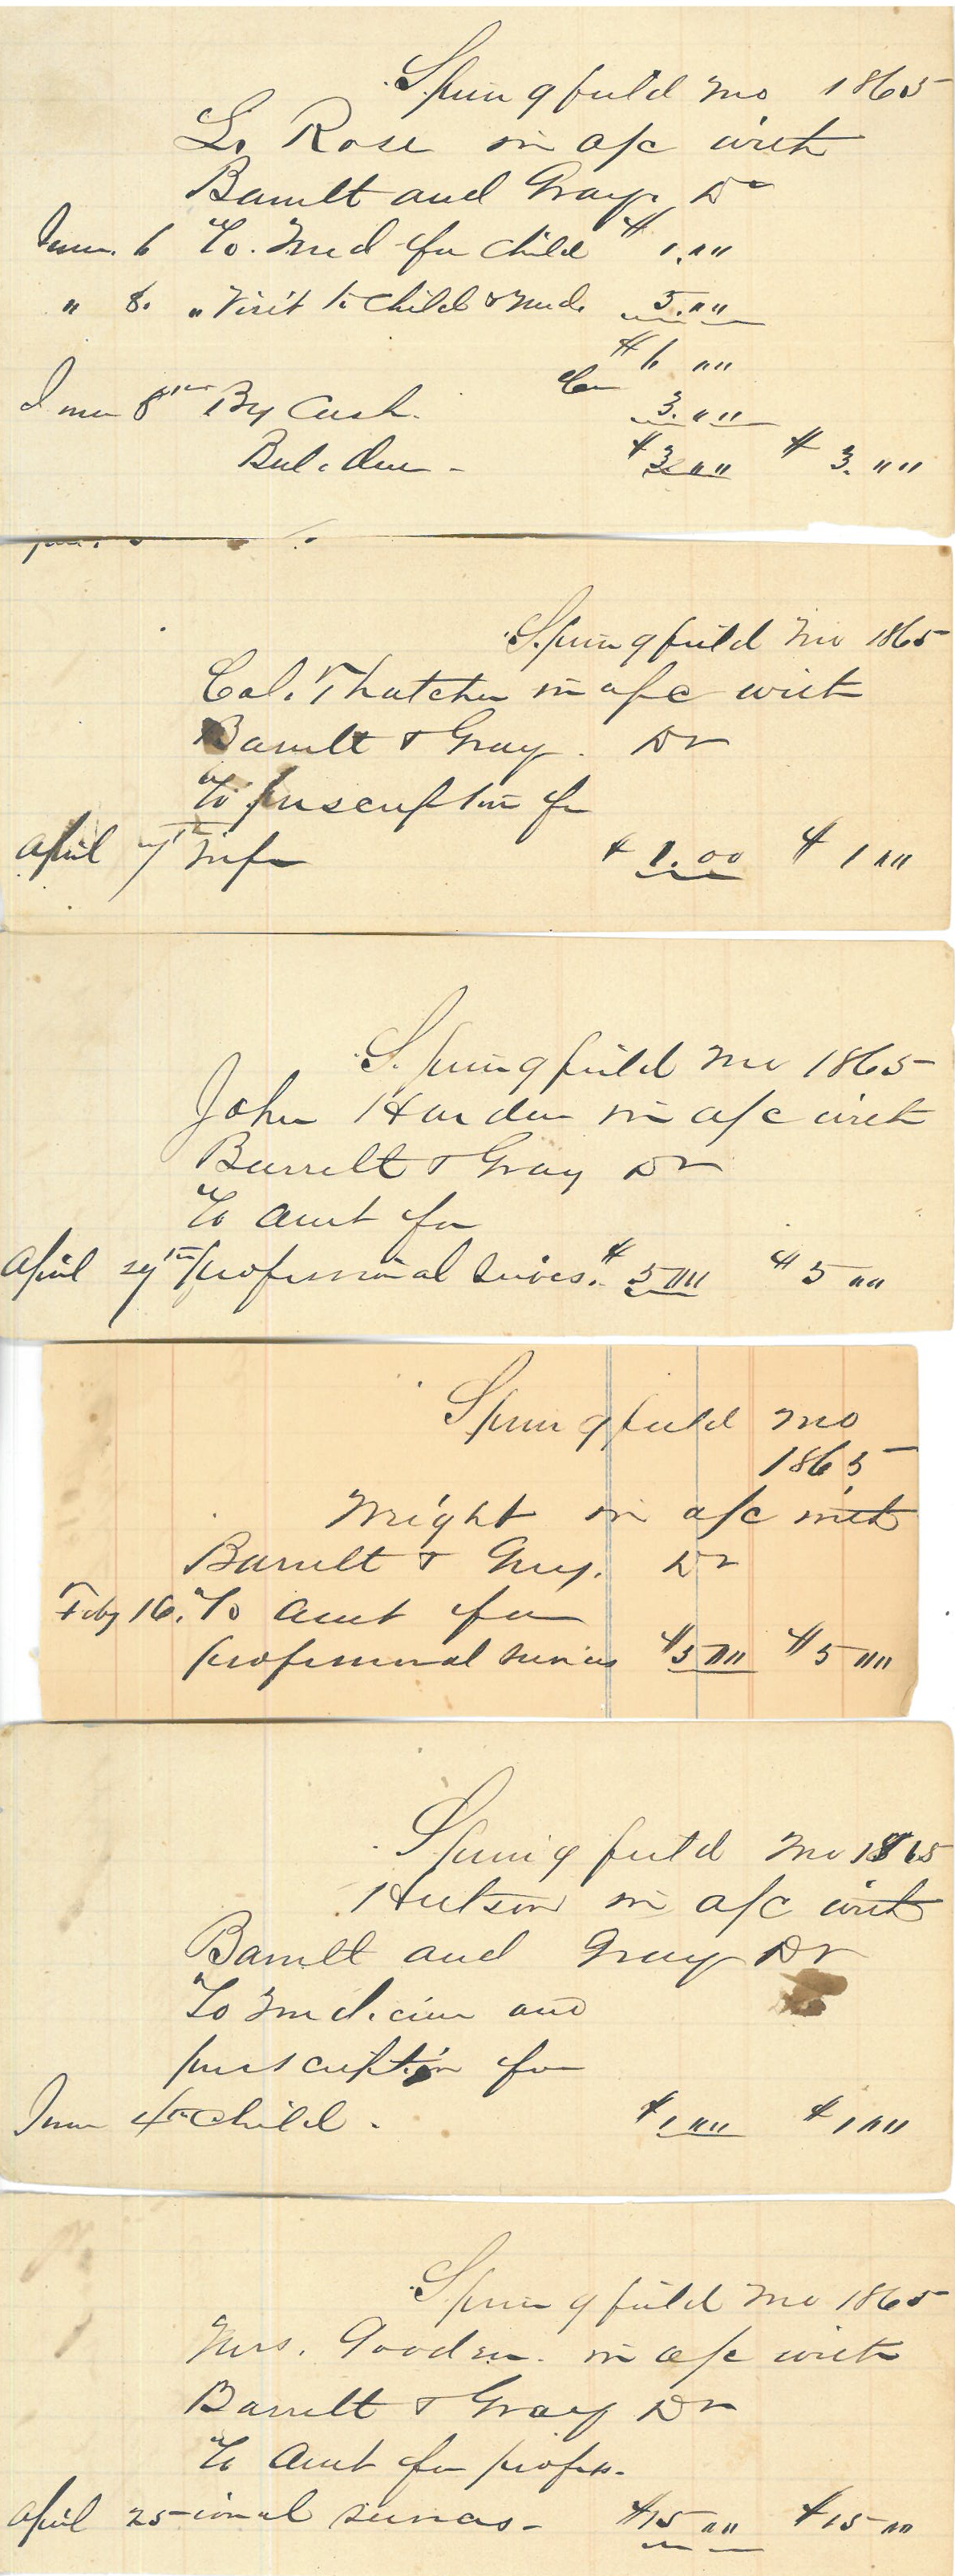 Springfield Mo 1865
L. Rose in a/c with
Barrett and Gray. Dr
June. 6 To. Med for Child $ 1.""
" 8. " Visit to Child & Med. 5.""
$ 6 ""
Cr
June 8th By Cash. 3.""
Bal. due - $ 3 "" $ 3. ""
Springfield Mo 1865
Col. Thatcher in a/c with
Barrett & Gray. Dr
To prescription for
April 7th Wife $ 1.00 $ 1 ""
Springfield Mo 1865
John Harden in a/c with
Barrett & Gray Dr
To Amt for
April 29th professional servies. $ 5 "" $ 5 ""
Springfield Mo
1865
Wright in a/c with
Barrett & Gray. Dr
Feby 16. To Amt for
professional services $ 5 "" $ 5 ""
Springfield Mo 1865
Hutson in a/c with
Barrett and Gray Dr
To Medicine and
prescription for
June 4th Child. $ 1 "" $ 1 ""
Springfield Mo 1865
Mrs. Gooden. in a/c with
Barrett & Gray Dr
To Amt for profess-
April 25 ional services - $15 "" $15 ""